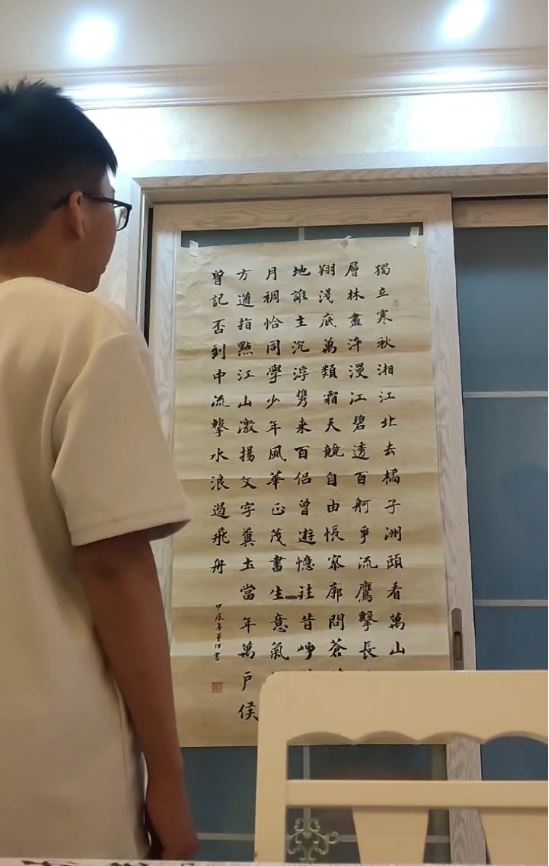 獨立寒秋湘江北去橘子洲頭看萬山
層林盡染漫江碧透百舸爭流鷹擊長
翔淺底萬類霜天競自由悵寥廓問蒼
地誰主沉浮攜来百侶曾遊憶往昔崢
月稠恰同學少年風華正茂書生意氣
方遒指點江山激揚文字糞土當年萬戶侯
曾記否到中流擊水浪遏飛舟
甲辰年書